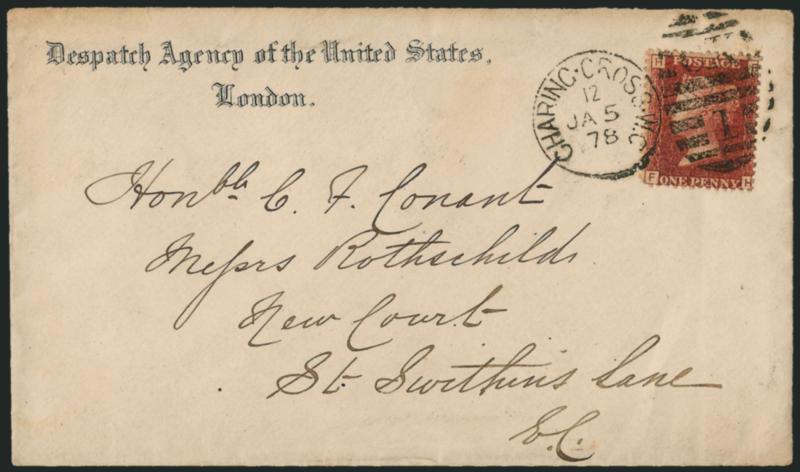 Despatch Agency of the United States,
London.
CHARING·CROSS·W.C
12
JA 5
78
H POSTAGE F
1
F ONE PENNY H
Honble C. F. Conant
Messrs Rothschilds
New Court
St. Swithin's Lane
E.C.